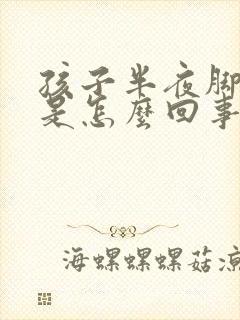 孩子半夜腳
是怎麼回事
海螺螺螺菇凉